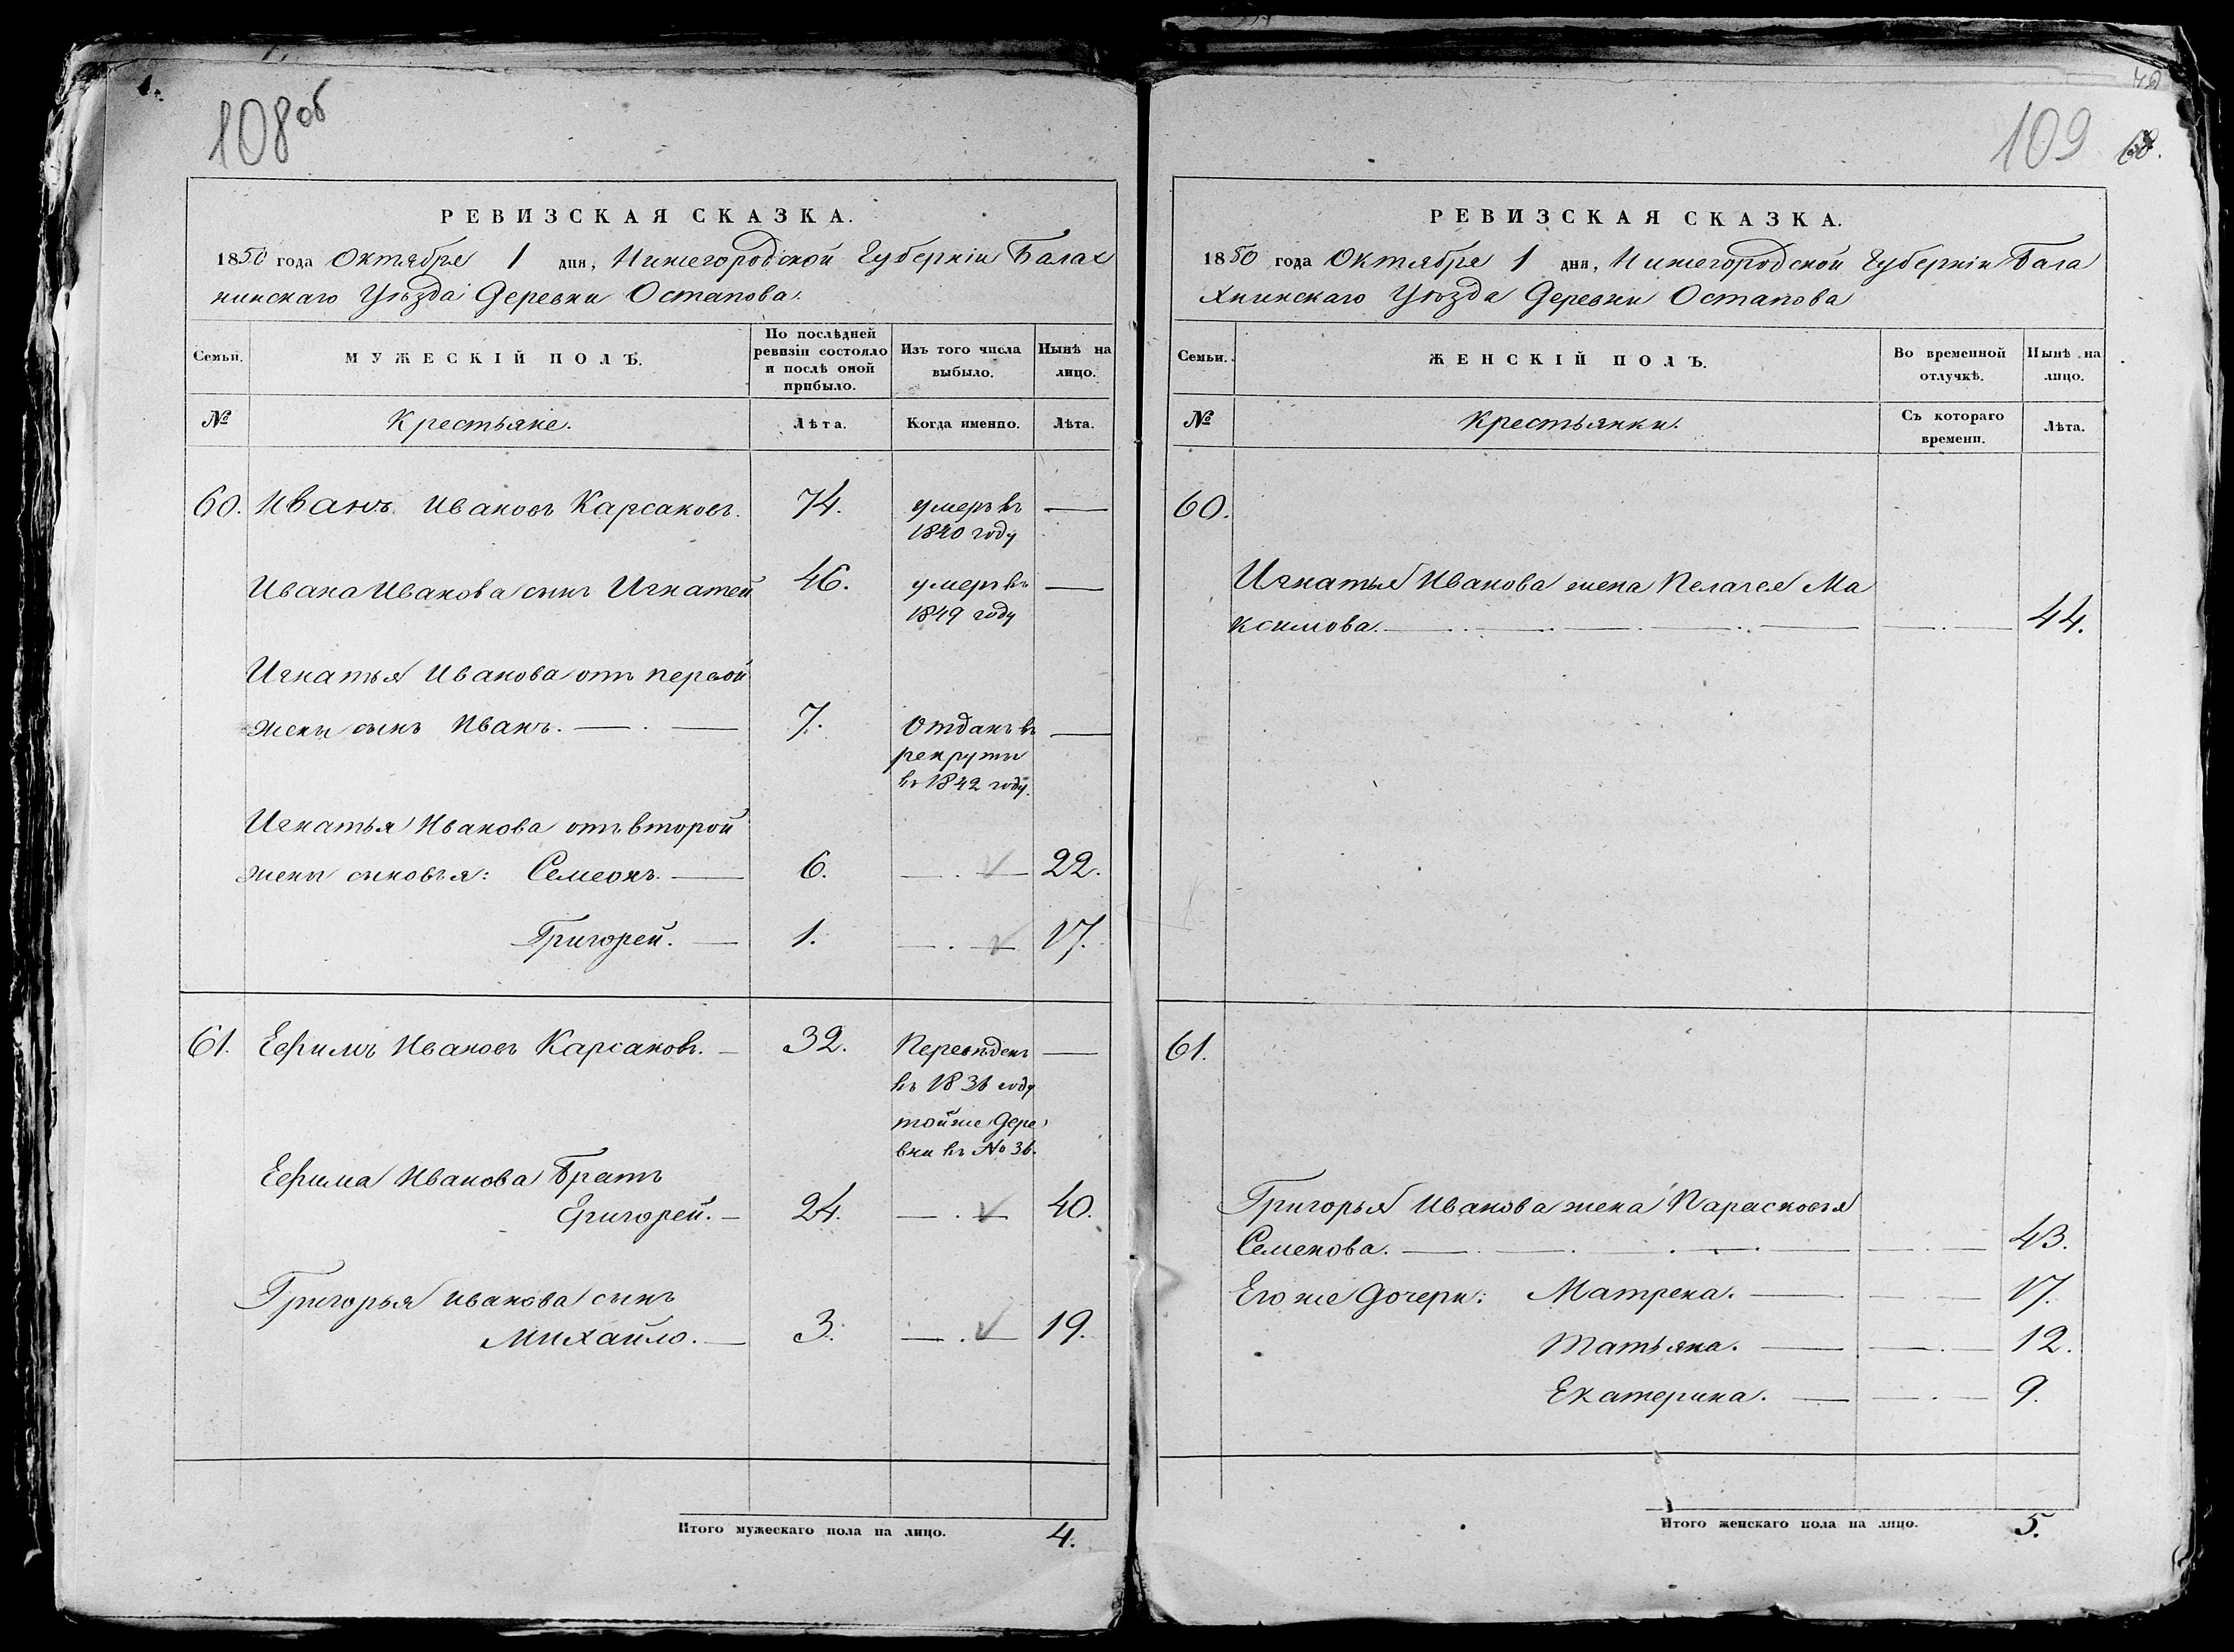 108об
РЕВИЗСКАЯ СКАЗКА.
1850 года Октября 1 дня, Нижегородской Губерніи Балах
нинскаго Уѣзда Деревни Остапова.
Семьи. МУЖЕСКІЙ ПОЛЪ. По послѣдней ревизіи состояло и послѣ оной прибыло. Изъ того числа выбыло. Нынѣ на лицо.
№ Крестьяне. Лѣта. Когда именно. Лѣта.
60. Иванъ Ивановъ Карсаковъ. 74. умеръ въ —
1840 году
Ивана Иванова сынъ Игнатей 46. умеръ въ —
1849 году
Игнатья Иванова отъ первой
жены сынъ Иванъ. — . — 7. Отданъ въ —
рекруты
въ 1842 году.
Игнатья Иванова отъ второй
жены сыновья: Семеонъ. — 6. — . — 22.
Григорей. — 1. — . — 17.
61. Ефимъ Ивановъ Карсаковъ. — 32. Переведенъ —
въ 1836 году
тойже Дере
вни въ № 36.
Ефима Иванова Братъ
Григорей. — 24. — . — 40.
Григорья Иванова сынъ
Михайло. — 3. — . — 19.
Итого мужескаго пола на лицо. 4.
109
РЕВИЗСКАЯ СКАЗКА.
1850 года Октября 1 дня, Нижегородской Губерніи Бала
хнинскаго Уѣзда Деревни Остапова
Семьи. ЖЕНСКІЙ ПОЛЪ. Во временной отлучкѣ. Нынѣ на лицо.
№ Крестьянки. Съ котораго времени. Лѣта.
60.
Игнатья Иванова жена Пелагея Ма
ксимова. — . — . — . — . — — . — 44.
61.
Григорья Иванова жена Парасковья
Семенова. — . — . — . — — . — 43.
Его же Дочери: Матрена. — . — . — 17.
Татьяна. — — . — 12.
Екатерина. — — . — 9.
Итого женскаго пола на лицо. 5.